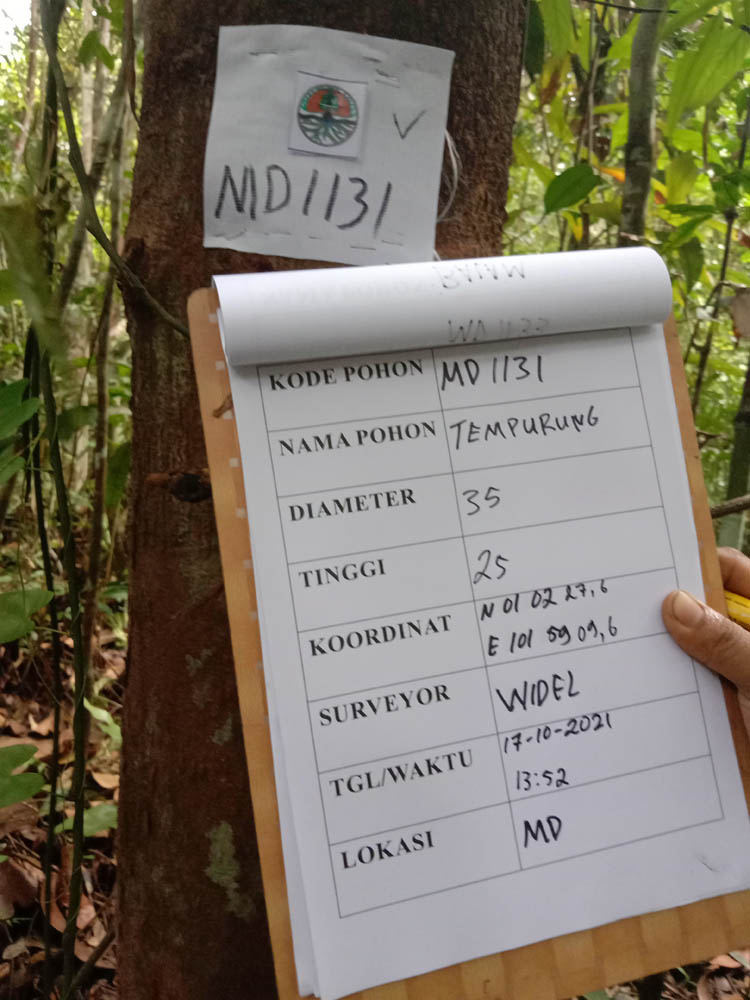 MD1131
KODE POHON MD 1131
NAMA POHON TEMPURUNG
DIAMETER 35
TINGGI 25
KOORDINAT N 01 02 27,6
E 101 59 09,6
SURVEYOR WIDEL
TGL/WAKTU 17-10-2021
13:52
LOKASI MD